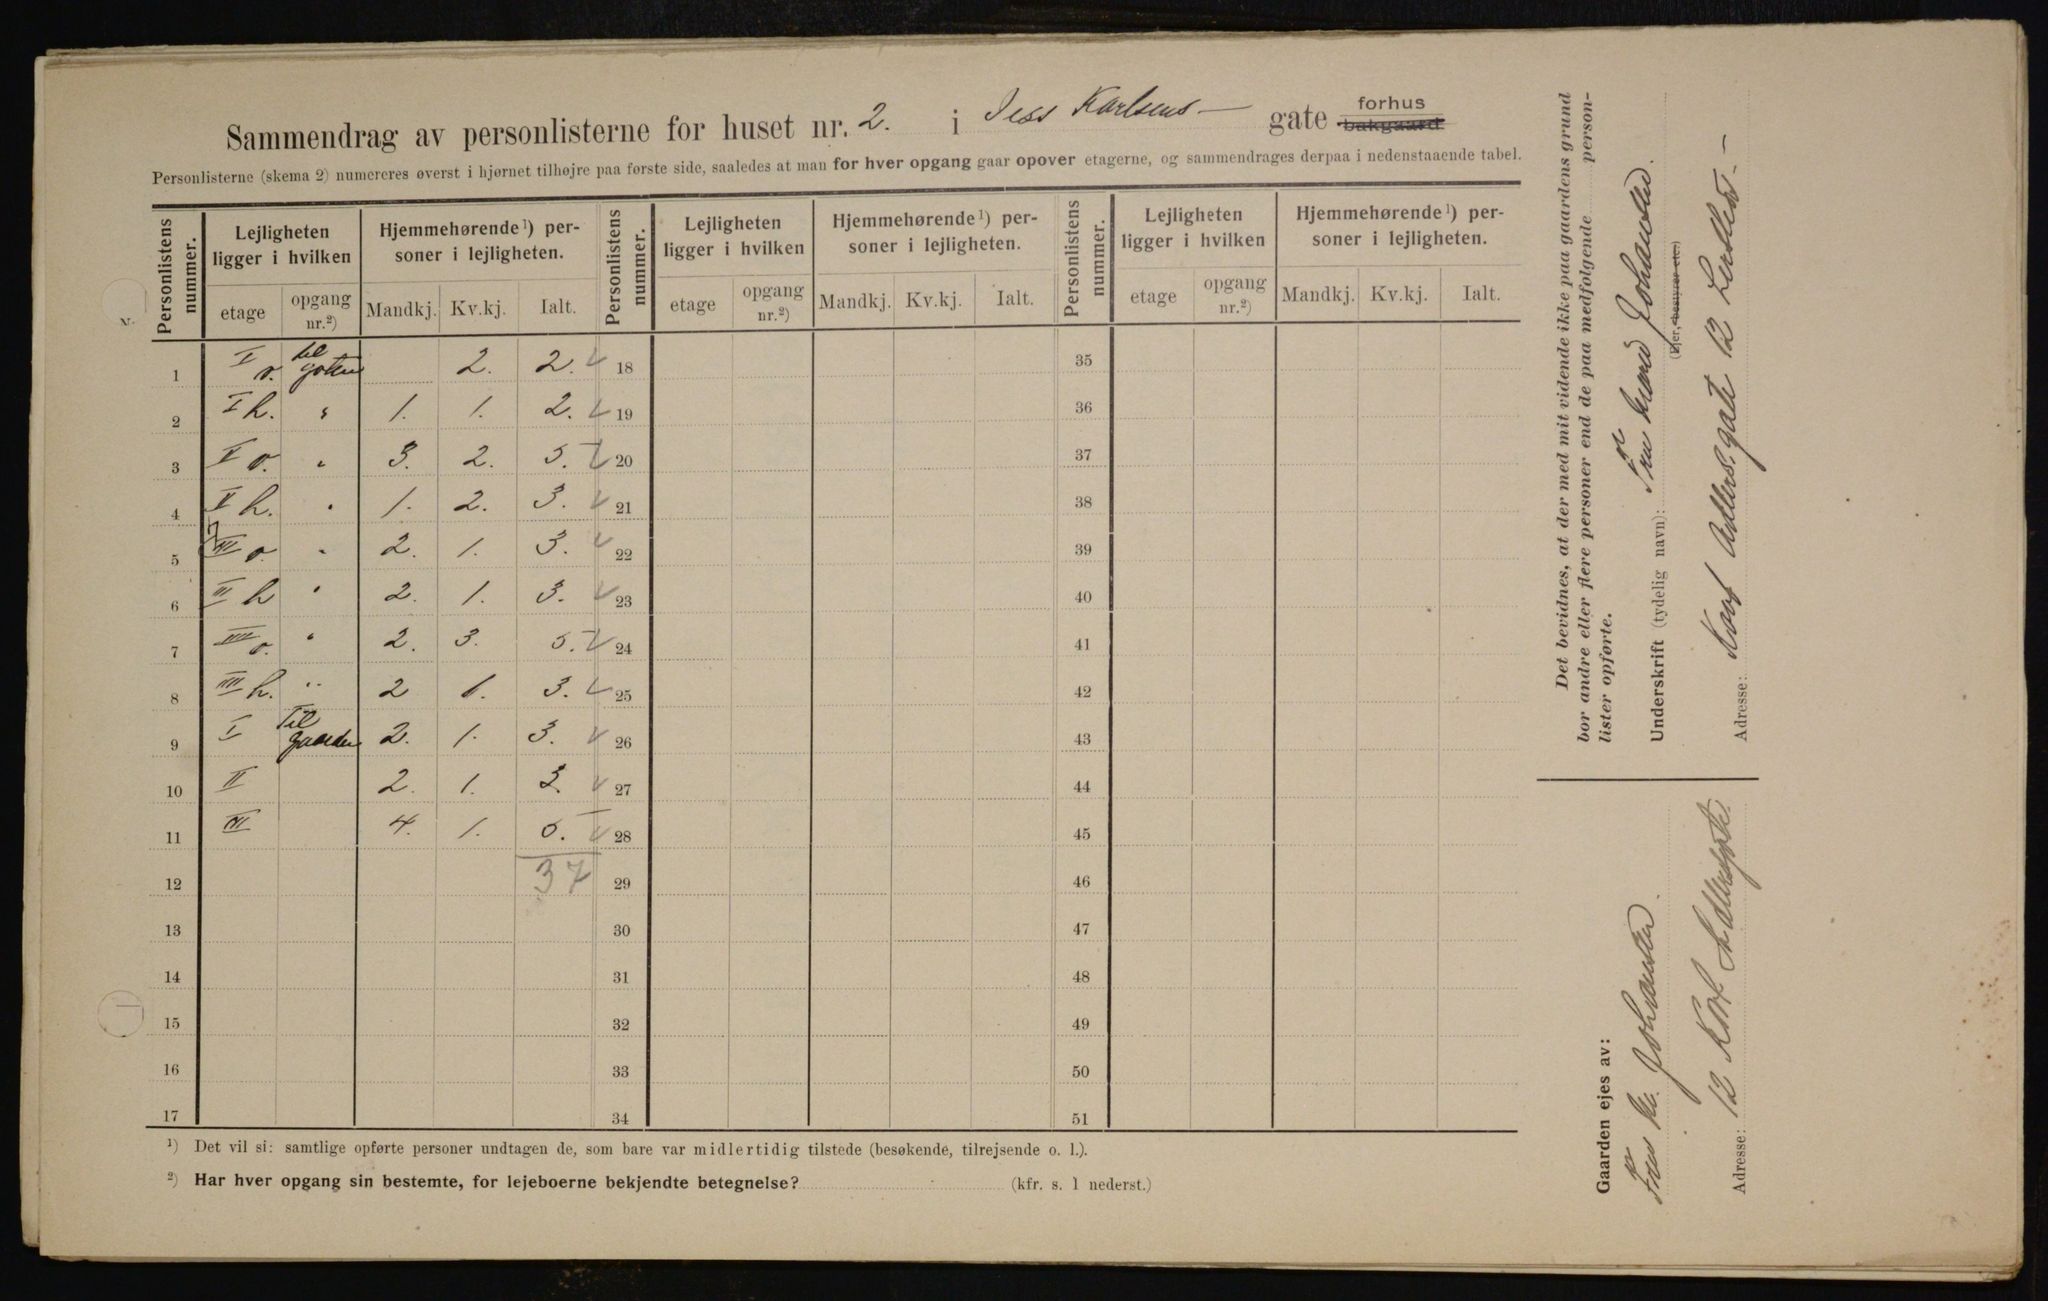 Sammendrag av personlisterne for huset nr. 2. i Jess Karlsens gate forhus bakgaard
Personlisterne (skema 2) numereres øverst i hjørnet tilhøjre paa første side, saaledes at man for hver opgang gaar opover etagerne, og sammendrages derpaa i nedenstaaende tabel.
Personlistens nummer. Lejligheten ligger i hvilken Hjemmehørende¹) personer i lejligheten. Personlistens nummer. Lejligheten ligger i hvilken Hjemmehørende¹) personer i lejligheten. Personlistens nummer. Lejligheten ligger i hvilken Hjemmehørende¹) personer i lejligheten.
etage opgang nr.²) Mandkj. Kv.kj. Ialt. etage opgang nr.²) Mandkj. Kv.kj. Ialt. etage opgang nr.²) Mandkj. Kv.kj. Ialt.
1 I v. til gaten 2. 2. 18 35
2 I h. " 1. 1. 2. 19 36
3 II v. " 3. 2. 5. 20 37
4 II h. " 1. 2. 3. 21 38
5 III v. " 2. 1. 3. 22 39
6 III h " 2. 1. 3. 23 40
7 IIII v. " 2. 3. 5. 24 41
8 IIII h. " 2 1. 3. 25 42
9 I Til gaarden 2. 1. 3. 26 43
10 II 2. 1. 3. 27 44
11 III 4. 1. 5. 28 45
12 37 29 46
13 30 47
14 31 48
15 32 49
16 33 50
17 34 51
¹) Det vil si: samtlige opførte personer undtagen de, som bare var midlertidig tilstede (besøkende, tilrejsende o. l.).
²) Har hver opgang sin bestemte, for lejeboerne bekjendte betegnelse? (kfr. s. 1 nederst.)
Det bevidnes, at der med mit vidende ikke paa gaardens grund
bor andre eller flere personer end de paa medfølgende person-
lister opførte.
Underskrift (tydelig navn): Fru Johansen
(Ejer, bestyrer etc.)
Adresse: gate 12
Gaarden ejes av:
Fru M. Johansen
Adresse: 12